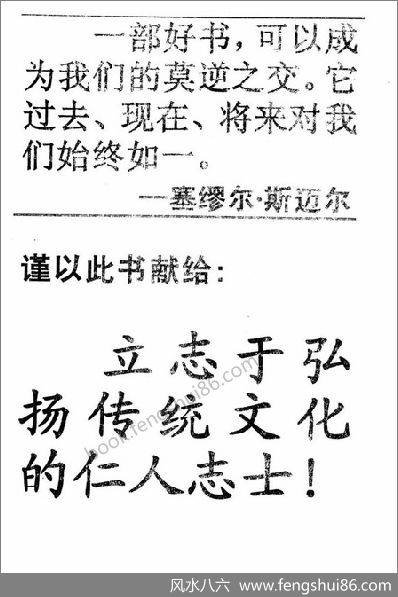 一部好书，可以成
为我们的莫逆之交。它
过去、现在、将来对我
们始终如一。
—塞缪尔·斯迈尔
谨以此书献给：
立志于弘
扬传统文化
的仁人志士！
book.fengshui86.com
风水八六 www.fengshui86.com